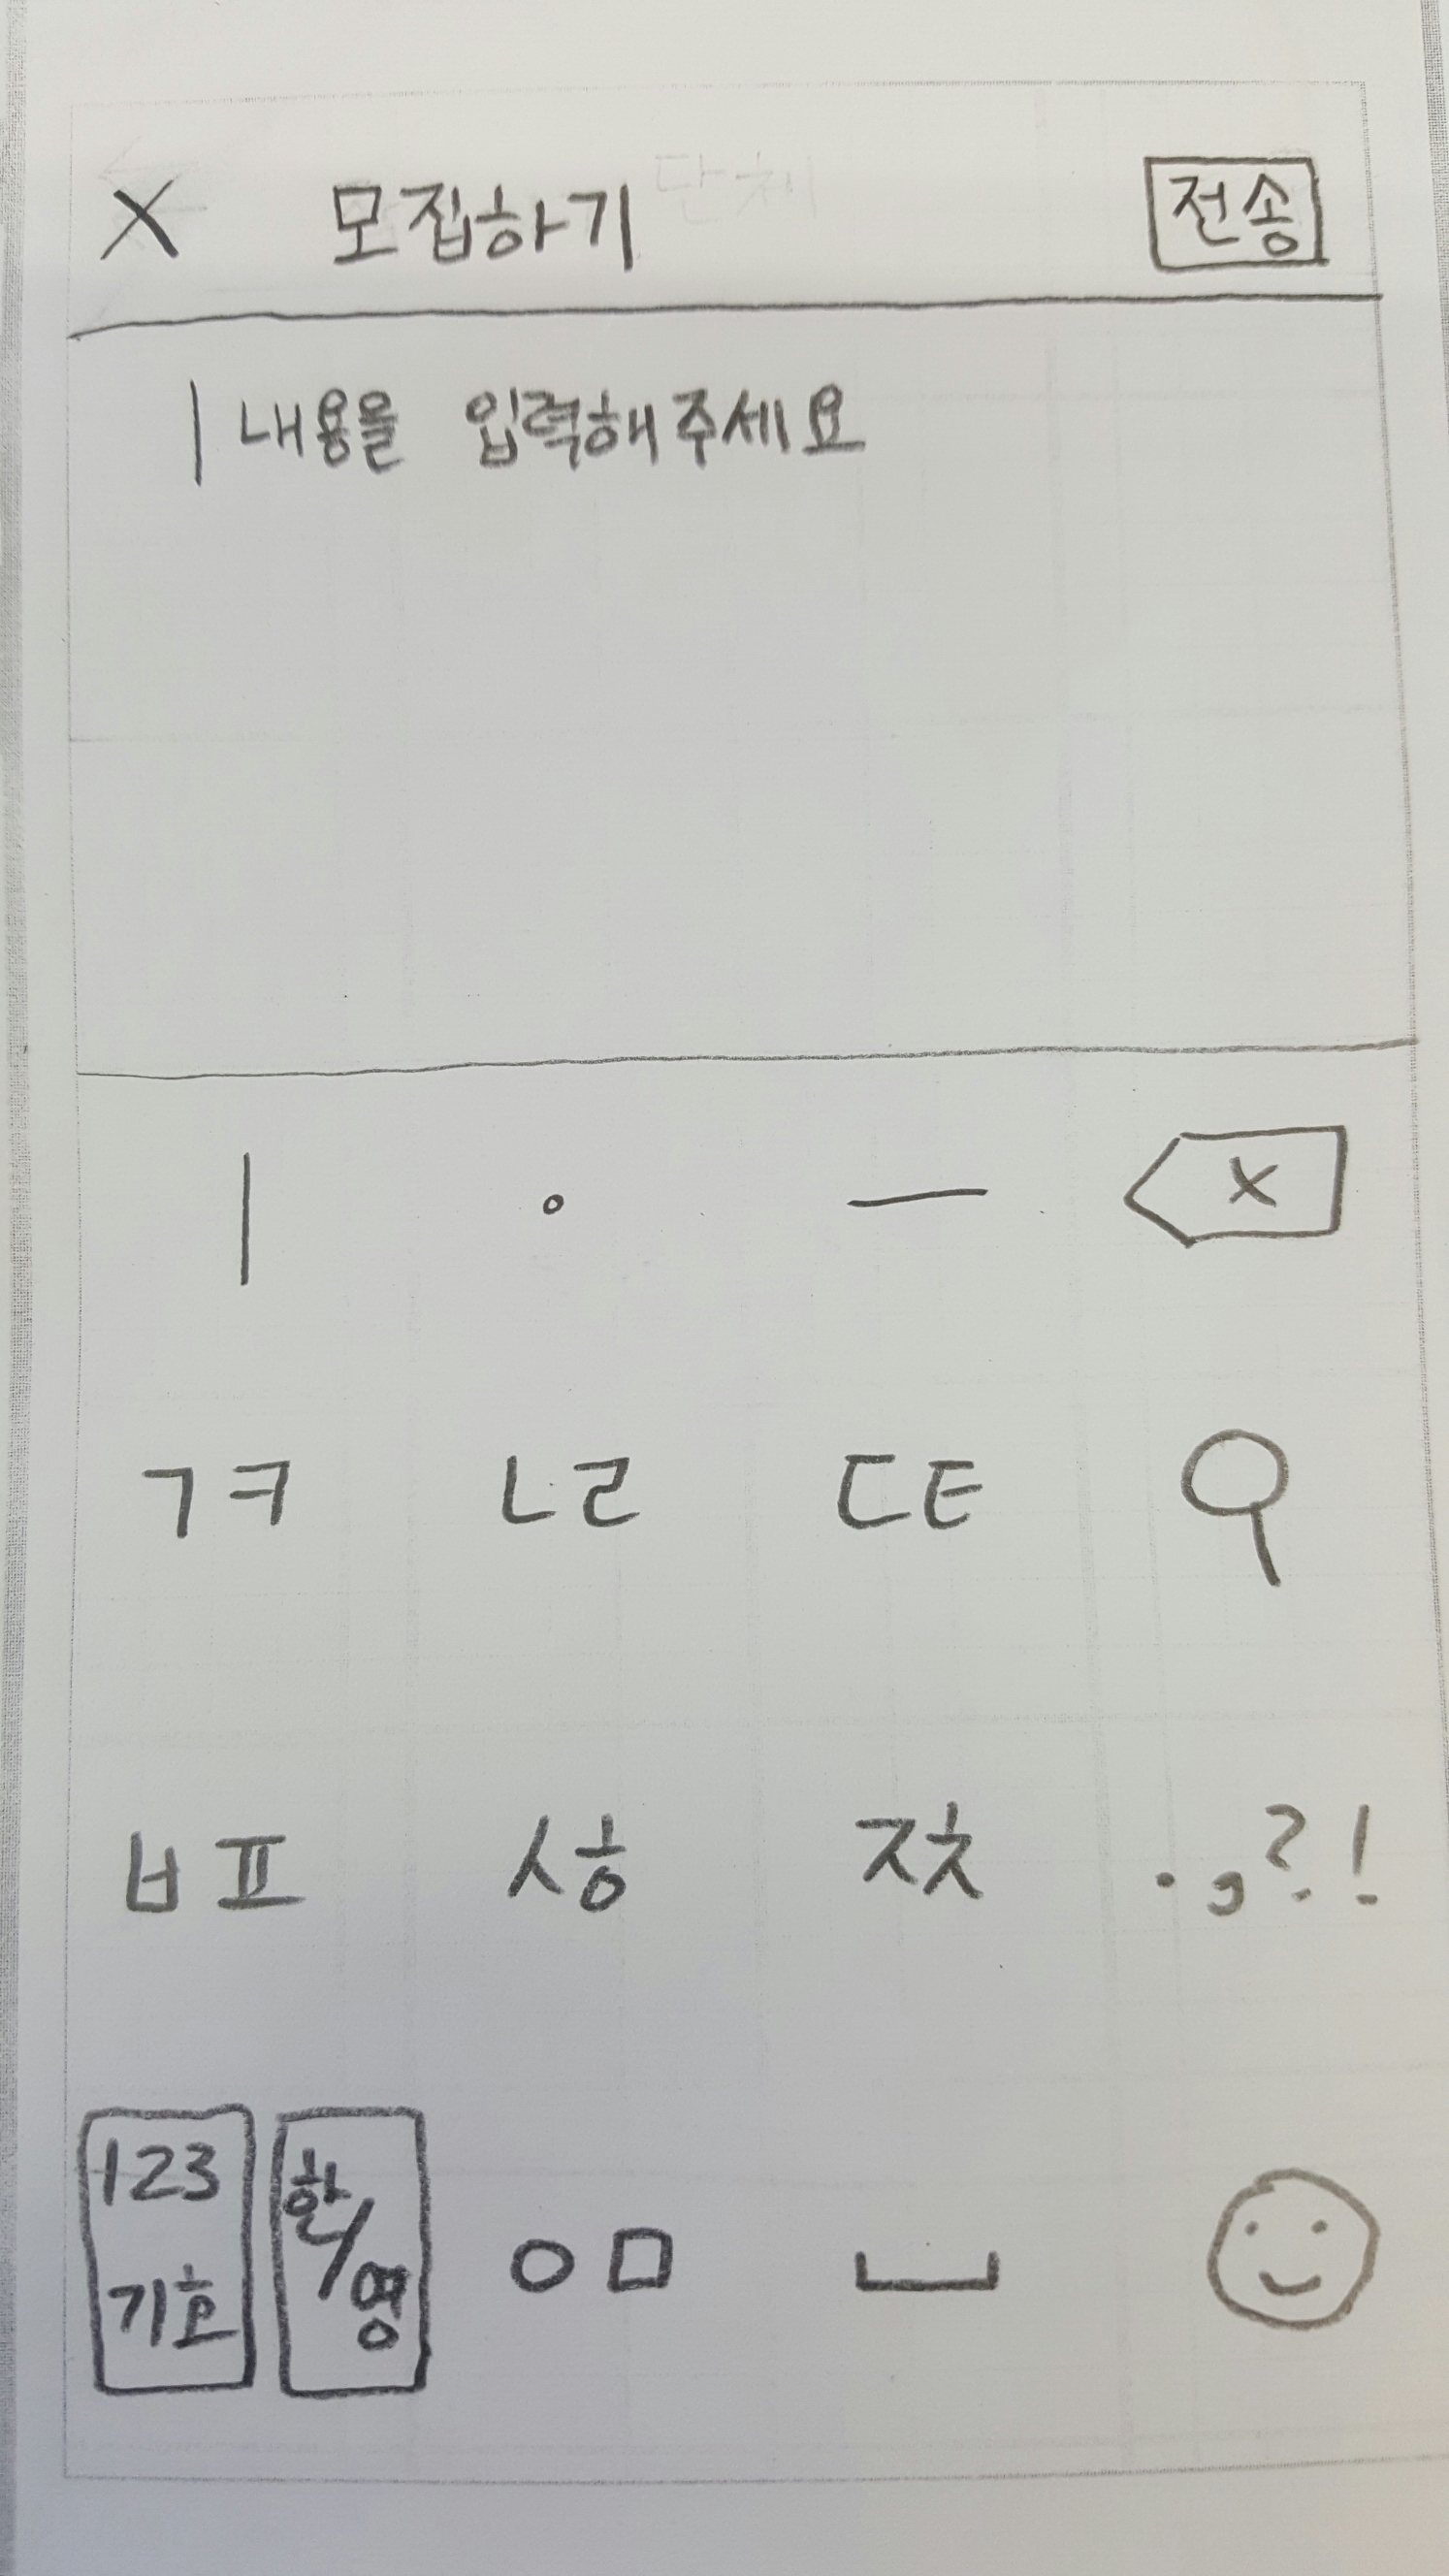 X 모집하기 단체 전송
내용을 입력해주세요
ㅣ ㆍ ㅡ X
ㄱㅋ ㄴㄹ ㄷㅌ
ㅂㅍ ㅅㅎ ㅈㅊ .,?!
123 기호 한/영 ㅇㅁ